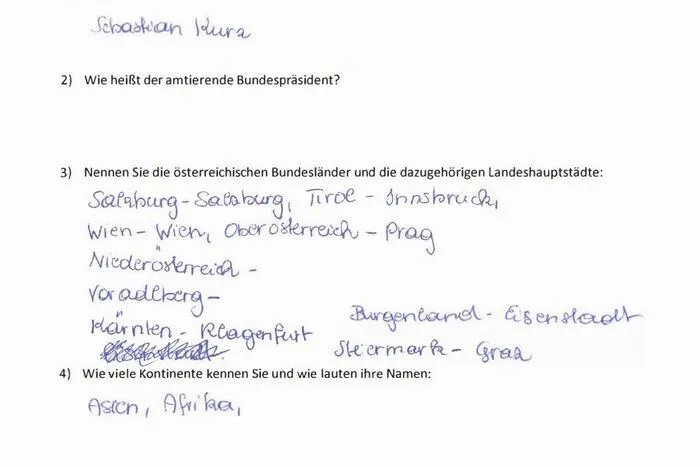 Sebastian Kurz
2) Wie heißt der amtierende Bundespräsident?
3) Nennen Sie die österreichischen Bundesländer und die dazugehörigen Landeshauptstädte:
Salzburg - Salzburg, Tirol - Innsbruck,
Wien - Wien, Oberösterreich - Prag
Niederösterreich -
Voradlberg -
Kärnten - Klagenfurt
Burgenland - Eisenstadt
Steiermark - Graz
4) Wie viele Kontinente kennen Sie und wie lauten ihre Namen:
Asien, Afrika,